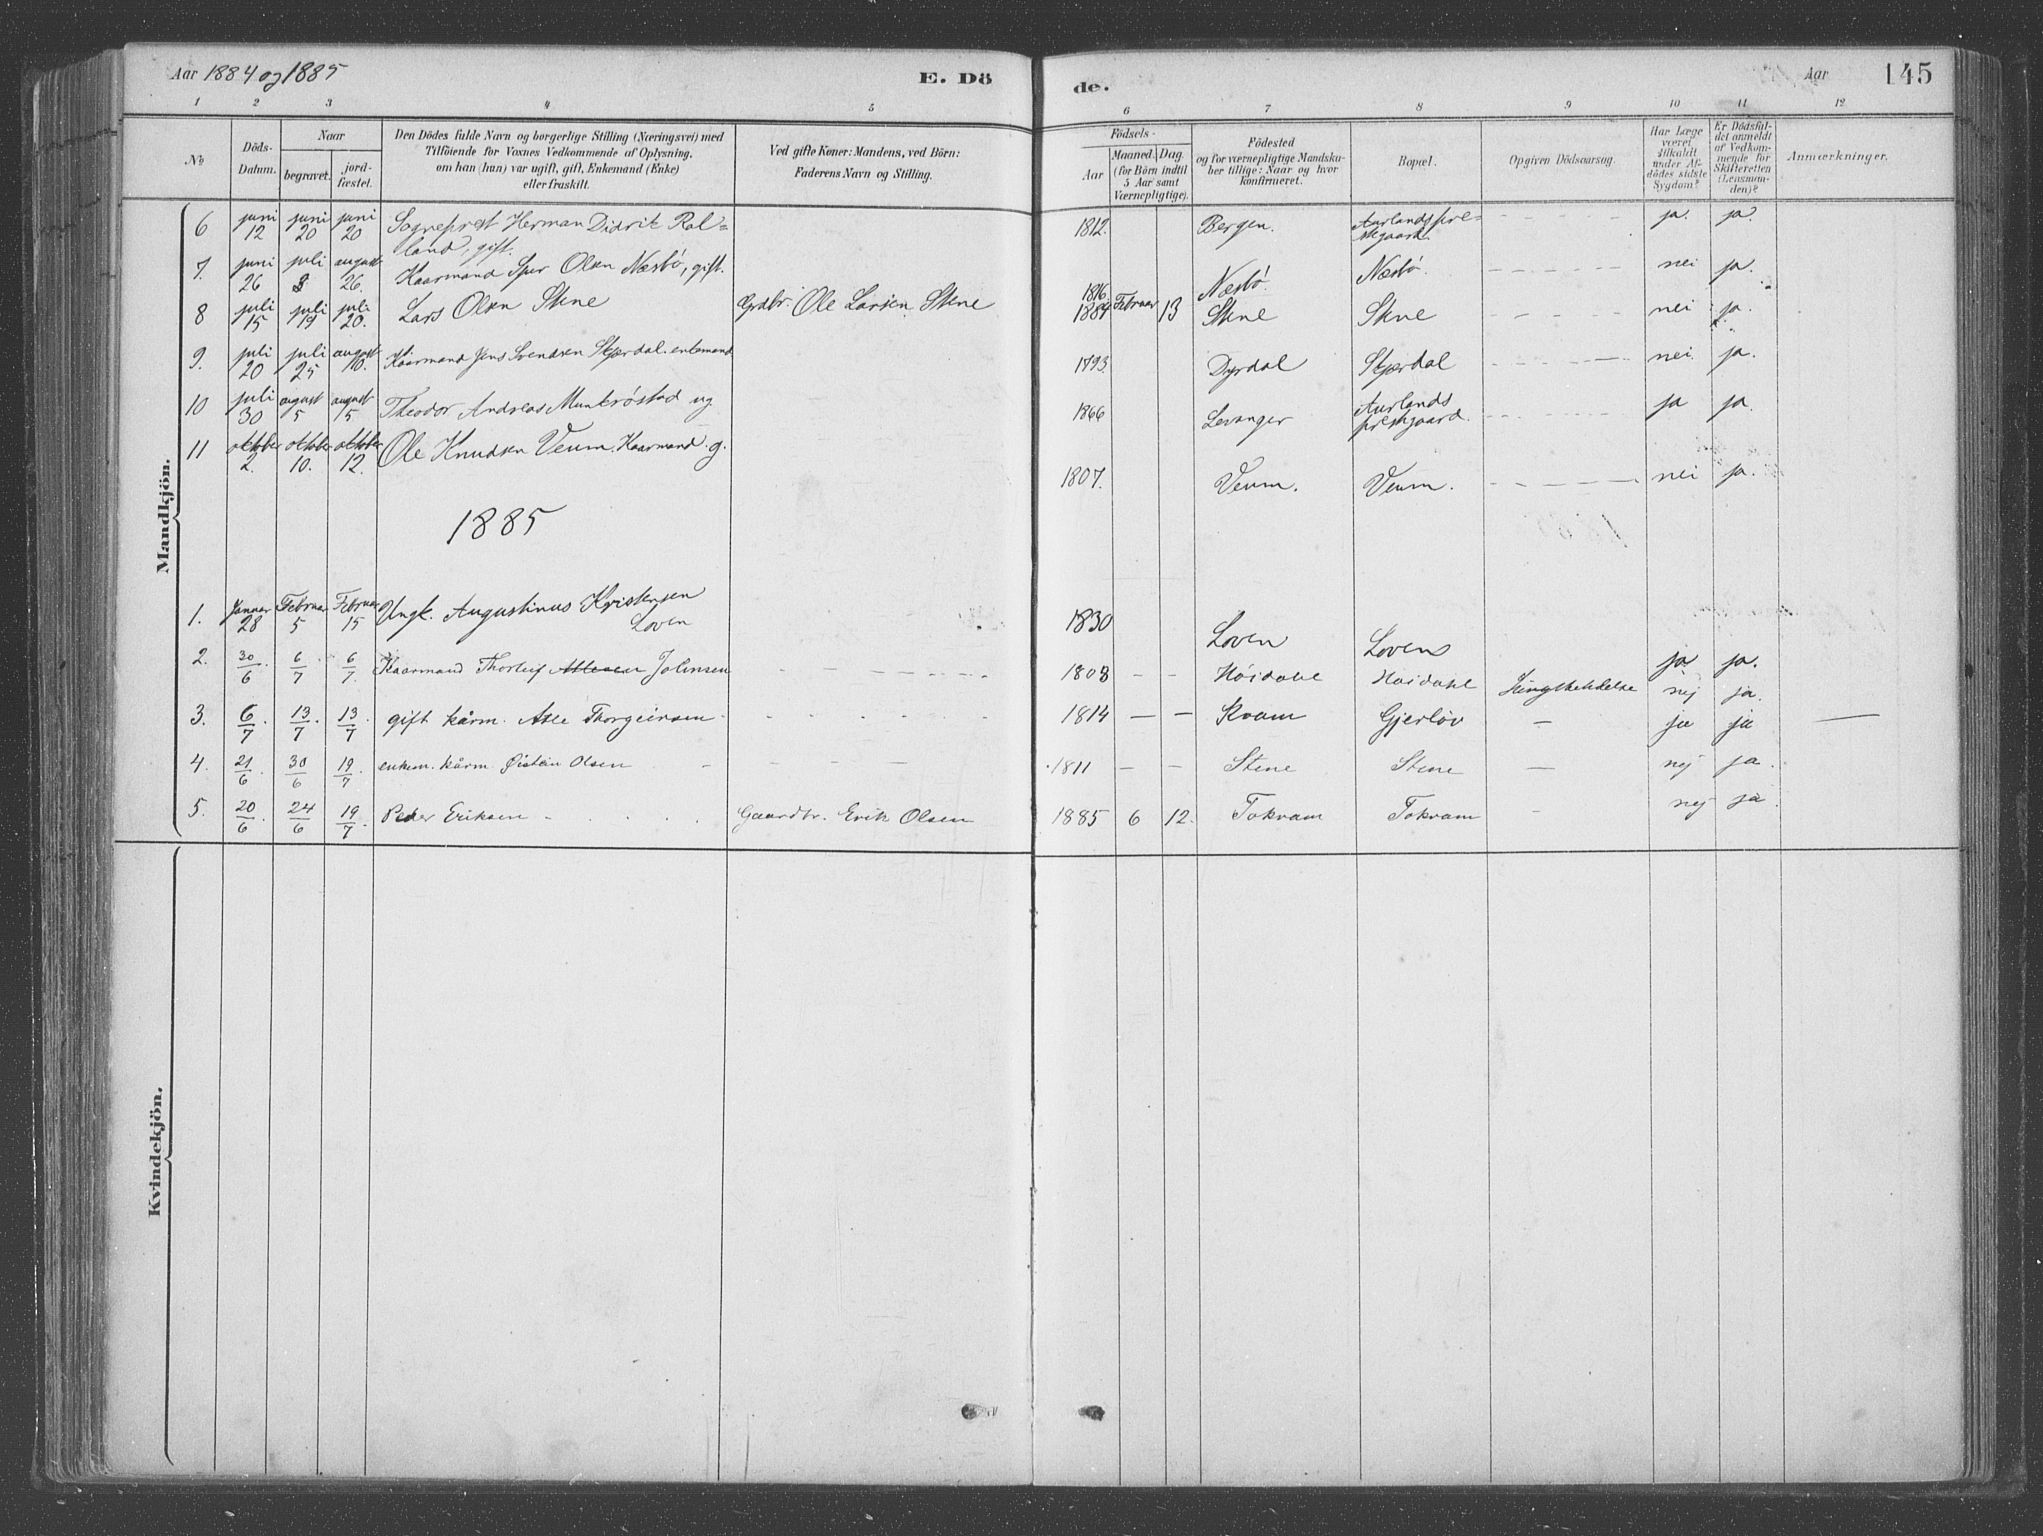 Aar 1884 og 1885 E. Dö de. Aar 145
1 2 3 4 5 6 7 8 9 10 11 12
No
Döds-Datum.
Naar
begravet.
jord-fæstet.
Den Dödes fulde Navn og borgerlige Stilling (Næringsvei) med
Tilföiende for Voxnes Vedkommende af Oplysning,
om han (hun) var ugift, gift, Enkemand (Enke)
eller fraskilt.
Ved gifte Koner: Mandens, ved Börn:
Faderens Navn og Stilling.
Födsels-
Aar
Maaned. Dag.
(for Börn indtil
5 Aar samt
Værnepligtige).
Födested
og for værnepligtige Mandska-
ber tillige: Naar og hvor
konfirmeret.
Bopæl.
Opgiven Dödsaarsag.
Har Læge
været
tilkaldt
under Af-
dödes sidste
Sygdom?
Er Dödsfal-
det anmeldt
af Vedkom-
mende for
Skifteretten
(Lensman-
den)?
Anmærkninger.
Mandkjön.
6 juni 12 juni 20 juni 20 Sogneprest Herman Didrik Rol=
land, gift. 1812. Bergen. Aurlandspre=
stegaard. ja. ja.
7. juni 26 juli 3 august 26. Kaarmand Sjur Olsen Næsbö, gift. 1816 Næsbö. Næsbö. nei ja.
8 juli 15 juli 19 juli 20. Lars Olsen Stene Grdbr. Ole Larsen Stene 1884 Februar 13 Stene Stene nei ja.
9. juli 20 juli 25 august 10. Kaarmand Jens Svendsen Skjerdal. enkemand 1793. Dyrdal Skjerdal nei. ja.
10 juli 30 august 5 august 5 Theodor Andreas Munkröstad ug 1866 Levanger Aurlands
prestgaard. ja ja.
11 oktober 2. oktober 10. oktober 12. Ole Knudsen Veum. Kaarmand. g. 1807. Veum. Veum. nei ja.
1885
1. Januar 28 Februar 5 Februar 15 Ungk. Augustinus Kristensen
Loven 1830 Loven Loven ja. ja.
2. 30/6 6/7 6/7. Kaarmand Thorleif Johnsen 1803 - - Höidahl Höidahl nej ja.
3. 6/7. 13/7. 13/7. gift kårm. Atle Thorgeirsen 1814 — — Kvam Gjerløv — ja ja —
4. 21/6. 30/6 19/7. enkem. kårm. Øistein Olsen 1811 — — Stene Stene — nej ja.
5. 20/6. 24/6 19/7. Peder Eriksen Gaardbr. Erik Olsen 1885 6 12. Tokvam Tokvam — nej ja.
Kvindekjön.